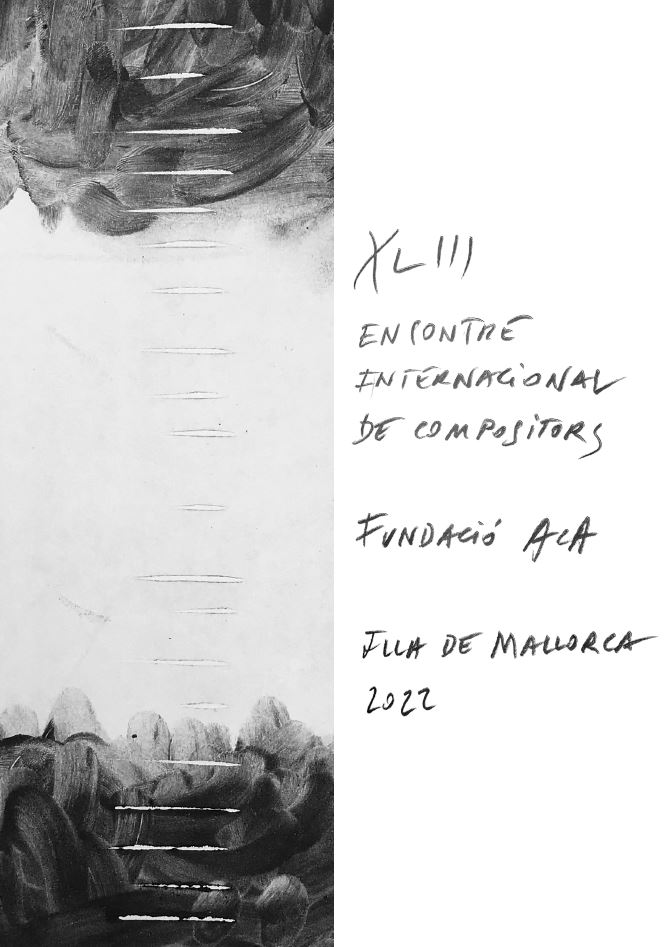 XLIII
ENCONTRE
INTERNACIONAL
DE COMPOSITORS
FUNDACIÓ ACA
ILLA DE MALLORCA
2022